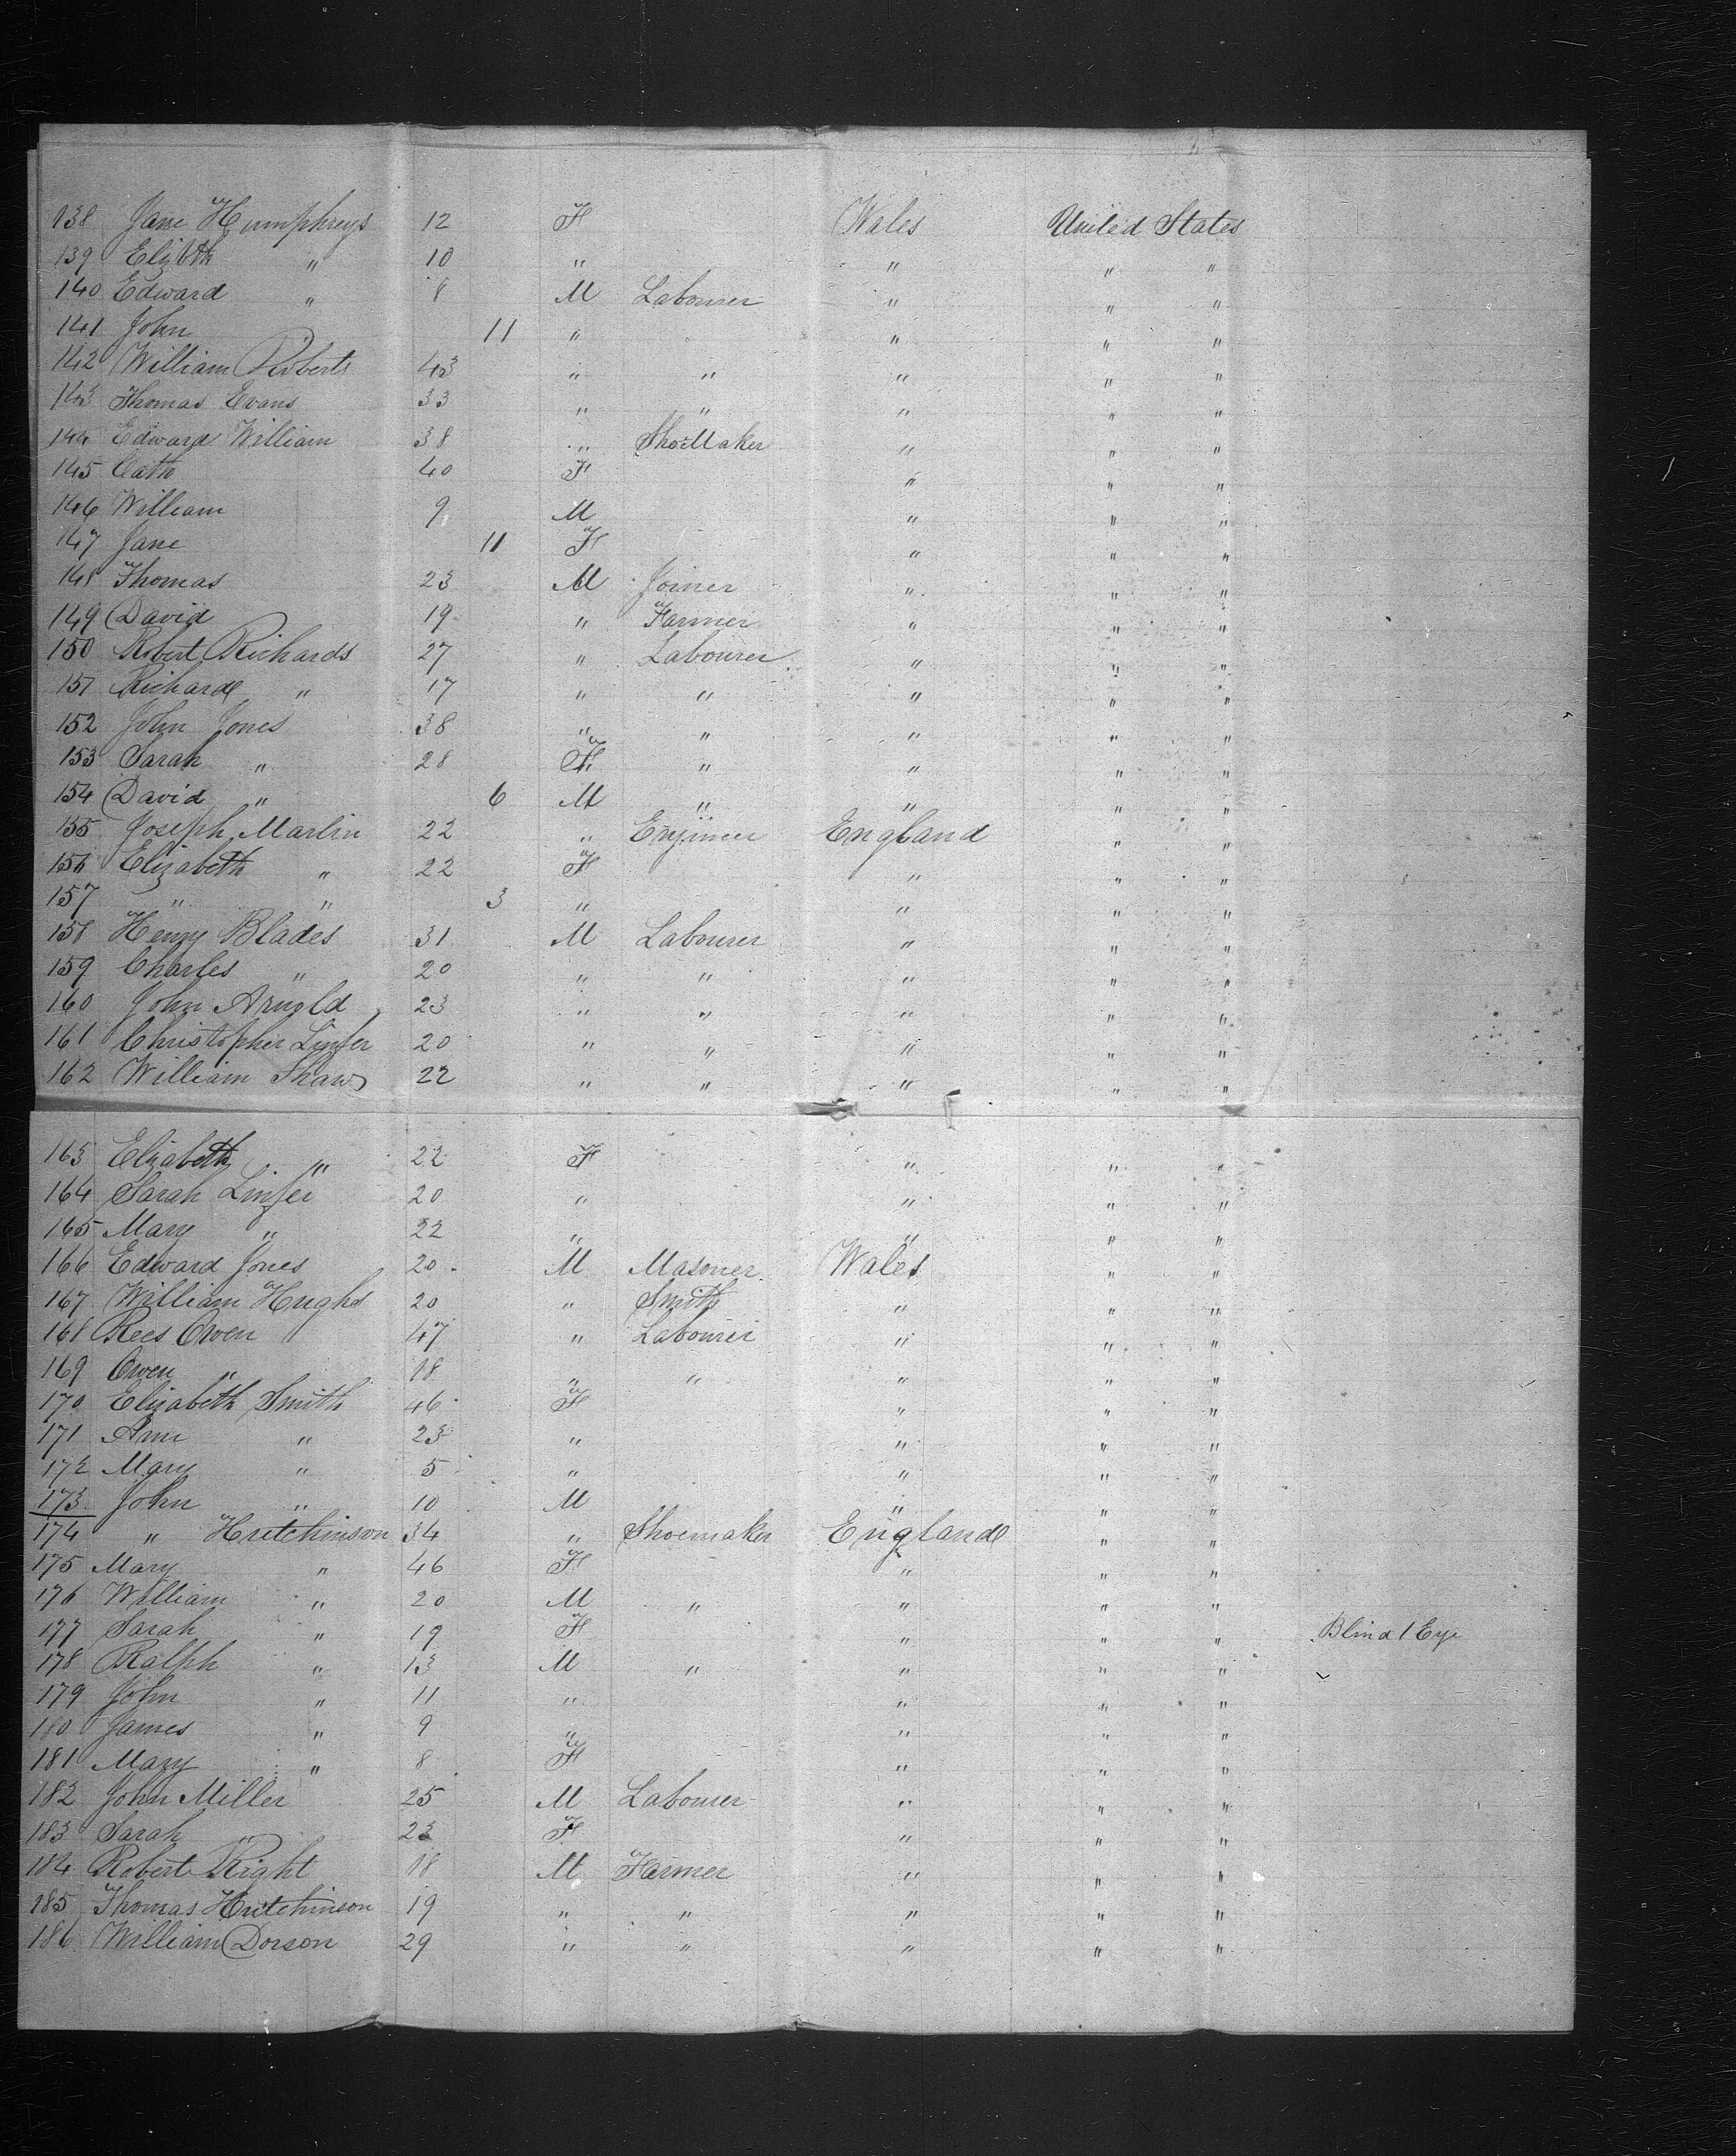 138 Jane Humphreys 12 F Wales United States
139 Elizbth " 10 " " " "
140 Edward " 8 M Labourer " " "
141 John 11 " " " "
142 William Roberts 43 " " " " "
143 Thomas Evans 33 " " " " "
144 Edward William 38 " ShoeMaker " " "
145 Cath 40 F " " "
146 William 9 M " " "
147 Jane 11 F " " "
148 Thomas 23 M Joiner " " "
149 David 19 " Farmer " " "
150 Robert Richards 27 " Labourer " " "
151 Richard " 17 " " " " "
152 John Jones 38 " " " " "
153 Sarah " 28 F " " " "
154 David " 6 M " " " "
155 Joseph Marlin 22 " Enjineer England " "
156 Elizabeth " 22 F " " "
157 " " 3 " " " "
158 Henry Blades 31 M Labourer " " "
159 Charles " 20 " " " " "
160 John Arnold 23 " " " " "
161 Christopher Linfer 20 " " " " "
162 William Shaw 22 " " " " "
163 Elizabeth " 22 F " " "
164 Sarah Linfer 20 " " " "
165 Mary " 22 " " " "
166 Edward Jones 20 M Masoner Wales " "
167 William Hughs 20 " Smith " " "
168 Rees Owen 47 " Labourer " " "
169 Owen " 18 " " " " "
170 Elizabeth Smith 46 F " " "
171 Ann " 23 " " " "
172 Mary " 5 " " " "
173 John " 10 M " " "
174 " Hutchinson 34 " Shoemaker England " "
175 Mary " 46 F " " "
176 William " 20 M " " " "
177 Sarah " 19 F " " " Blind 1 Eye
178 Ralph " 13 M " " " "
179 John " 11 " " " "
180 James " 9 " " " "
181 Mary " 8 F " " "
182 John Miller 25 M Labourer " " "
183 Sarah " 23 F " " "
184 Robert Right 18 M Farmer " " "
185 Thomas Hutchinson 19 " " " " "
186 William Dorson 29 " " " " "